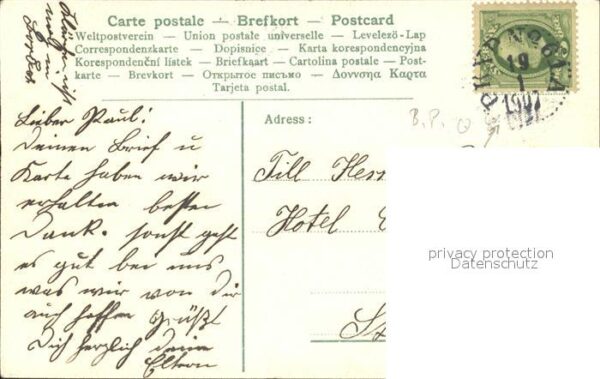 Carte postale – Brefkort – Postcard
Weltpostverein — Union postale universelle — Levelező-Lap
Correspondenzkarte — Dopisnice — Karta korespondencyjna
Korespondenční lístek — Briefkaart — Cartolina postale — Post-
karte — Brevkort — Открытое письмо — Δοννσηα Καρτα
Tarjeta postal.
Lieber Paul!
Deinen Brief u
Karte haben wir
erhalten besten
Dank. sonst geht
es gut bei uns
was wir von dir
auch hoffen Grüßt
Dich herzlich deine
Eltern
Adress:
B.P.
Till Herr
Hotel
19
1
1907
privacy protection
Datenschutz